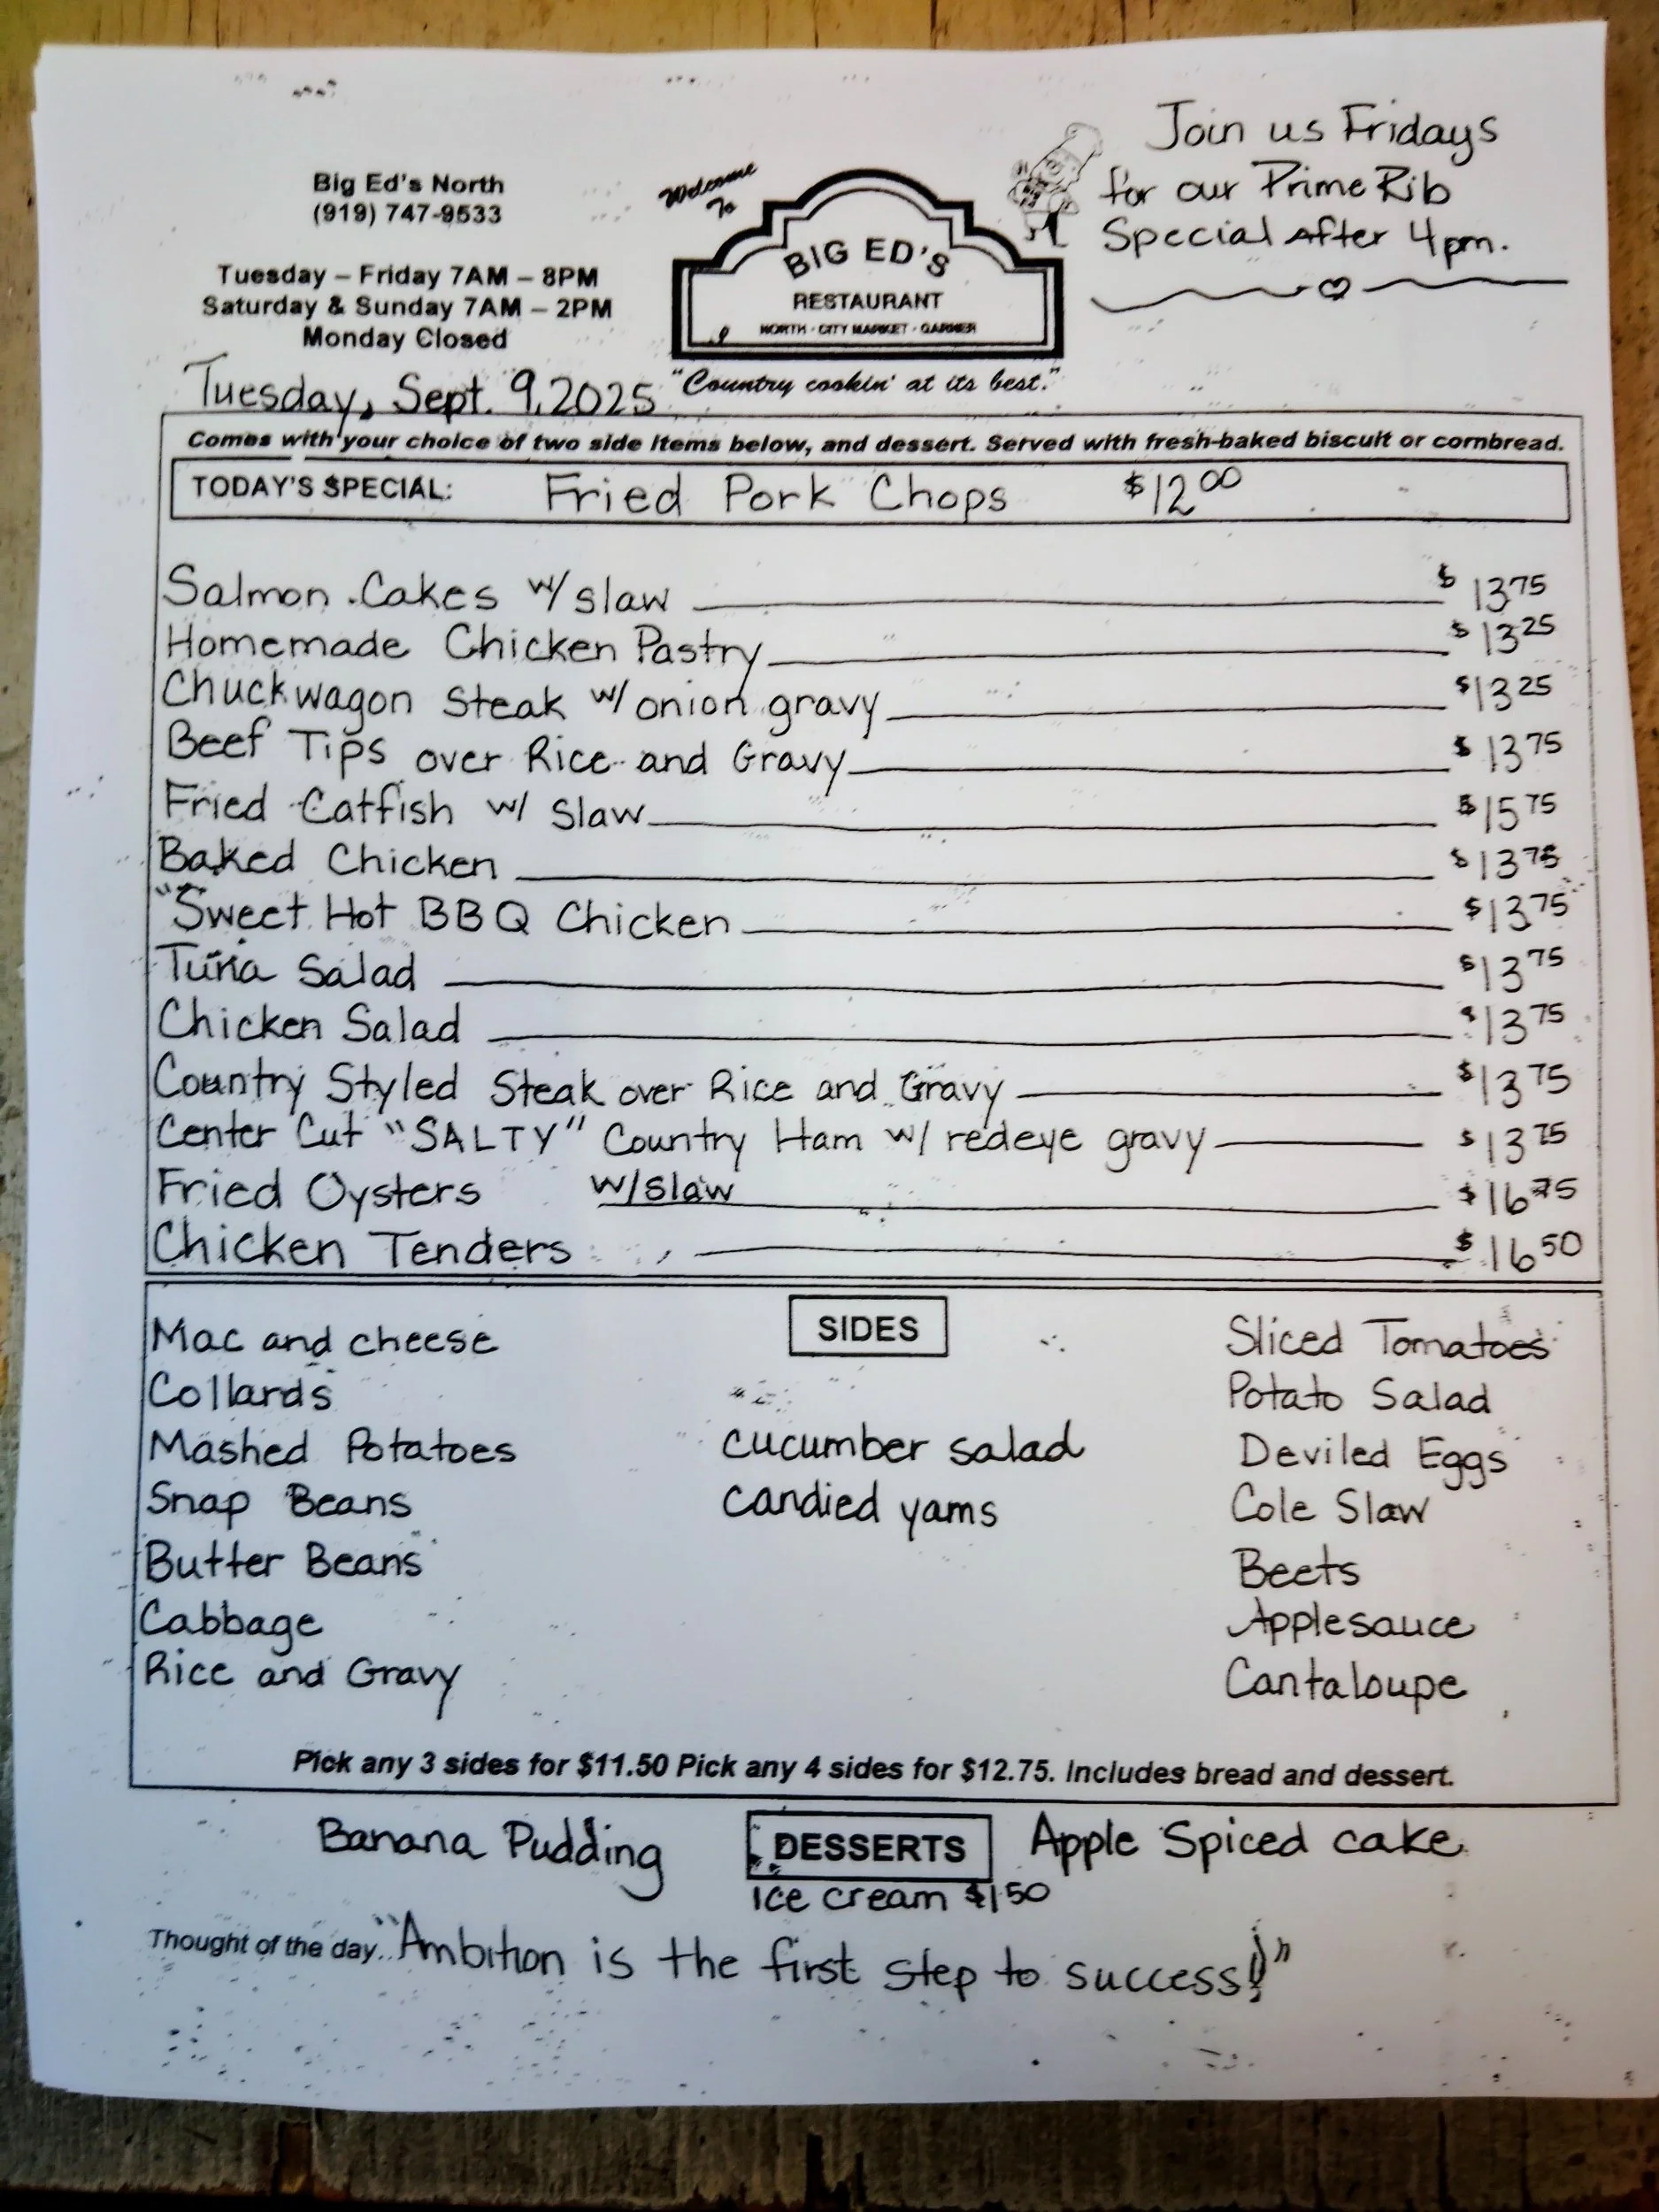 Big Ed's North
(919) 747-9533
Tuesday – Friday 7AM – 8PM
Saturday & Sunday 7AM – 2PM
Monday Closed
Welcome
To
BIG ED'S
RESTAURANT
NORTH - CITY MARKET - GARNER
"Country cookin' at its best."
Join us Fridays
for our Prime Rib
Special After 4pm.
Tuesday, Sept. 9, 2025
Comes with your choice of two side items below, and dessert. Served with fresh-baked biscuit or cornbread.
TODAY'S SPECIAL: Fried Pork Chops $12 00
Salmon Cakes w/ slaw $ 13 75
Homemade Chicken Pastry $ 13 25
Chuckwagon Steak w/ onion gravy $13 25
Beef Tips over Rice and Gravy $ 13 75
Fried Catfish w/ Slaw $15 75
Baked Chicken $13 75
"Sweet Hot BBQ Chicken $13 75
Tuna Salad $13 75
Chicken Salad $13 75
Country Styled Steak over Rice and Gravy $13 75
Center Cut "SALTY" Country Ham w/ redeye gravy $13 75
Fried Oysters w/slaw $16 75
Chicken Tenders $16 50
SIDES
Mac and cheese
Collards
Mashed Potatoes
Snap Beans
Butter Beans
Cabbage
Rice and Gravy
cucumber salad
candied yams
Sliced Tomatoes
Potato Salad
Deviled Eggs
Cole Slaw
Beets
Applesauce
Cantaloupe
Pick any 3 sides for $11.50 Pick any 4 sides for $12.75. Includes bread and dessert.
Banana Pudding DESSERTS Apple Spiced cake
Ice cream $1.50
Thought of the day.. "Ambition is the first step to success!"